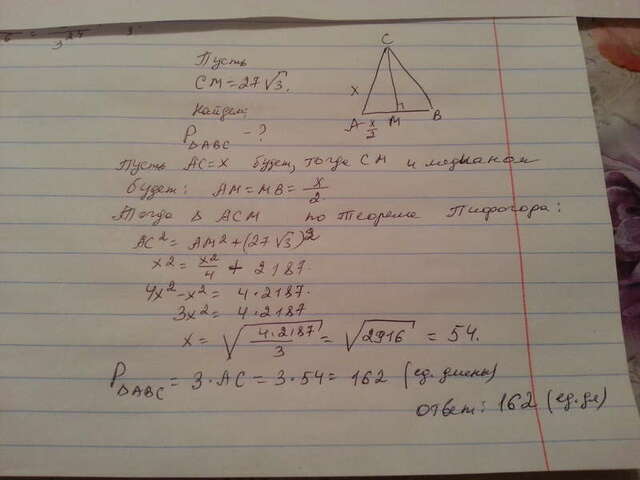 Пусть
CM=27√3.
Найдем:
P△ABC - ?
C
x
A x/2 M B
Пусть AC=x будет, тогда CM и медианой
будет: AM=MB= x/2
Тогда △ ACM по теореме Пифогора:
AC²= AM²+(27√3)²
x²= x²/4 + 2187.
4x²-x²= 4·2187.
3x²= 4·2187
x= √(4·2187/3) = √2916 = 54.
P△ABC = 3·AC= 3·54= 162 (ед.длины)
ответ: 162 (ед.дл)